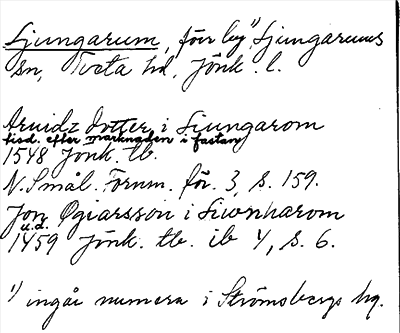 Ljungarum, förr by¹⁾, Ljungarums
sn, Tveta hd, Jönk. l.
Aruidz Dotter i Liungarom
tisd. efter marknaden i fastan
1548 Jönk. tb.
N. Smål. Fornm. för. 3, s. 159.
Jon Øgiarsson i Liwnharom
u.d.
1459 Jönk. tb. ib 4, s. 6.
¹⁾ ingår numera i Strömsbergs hg.